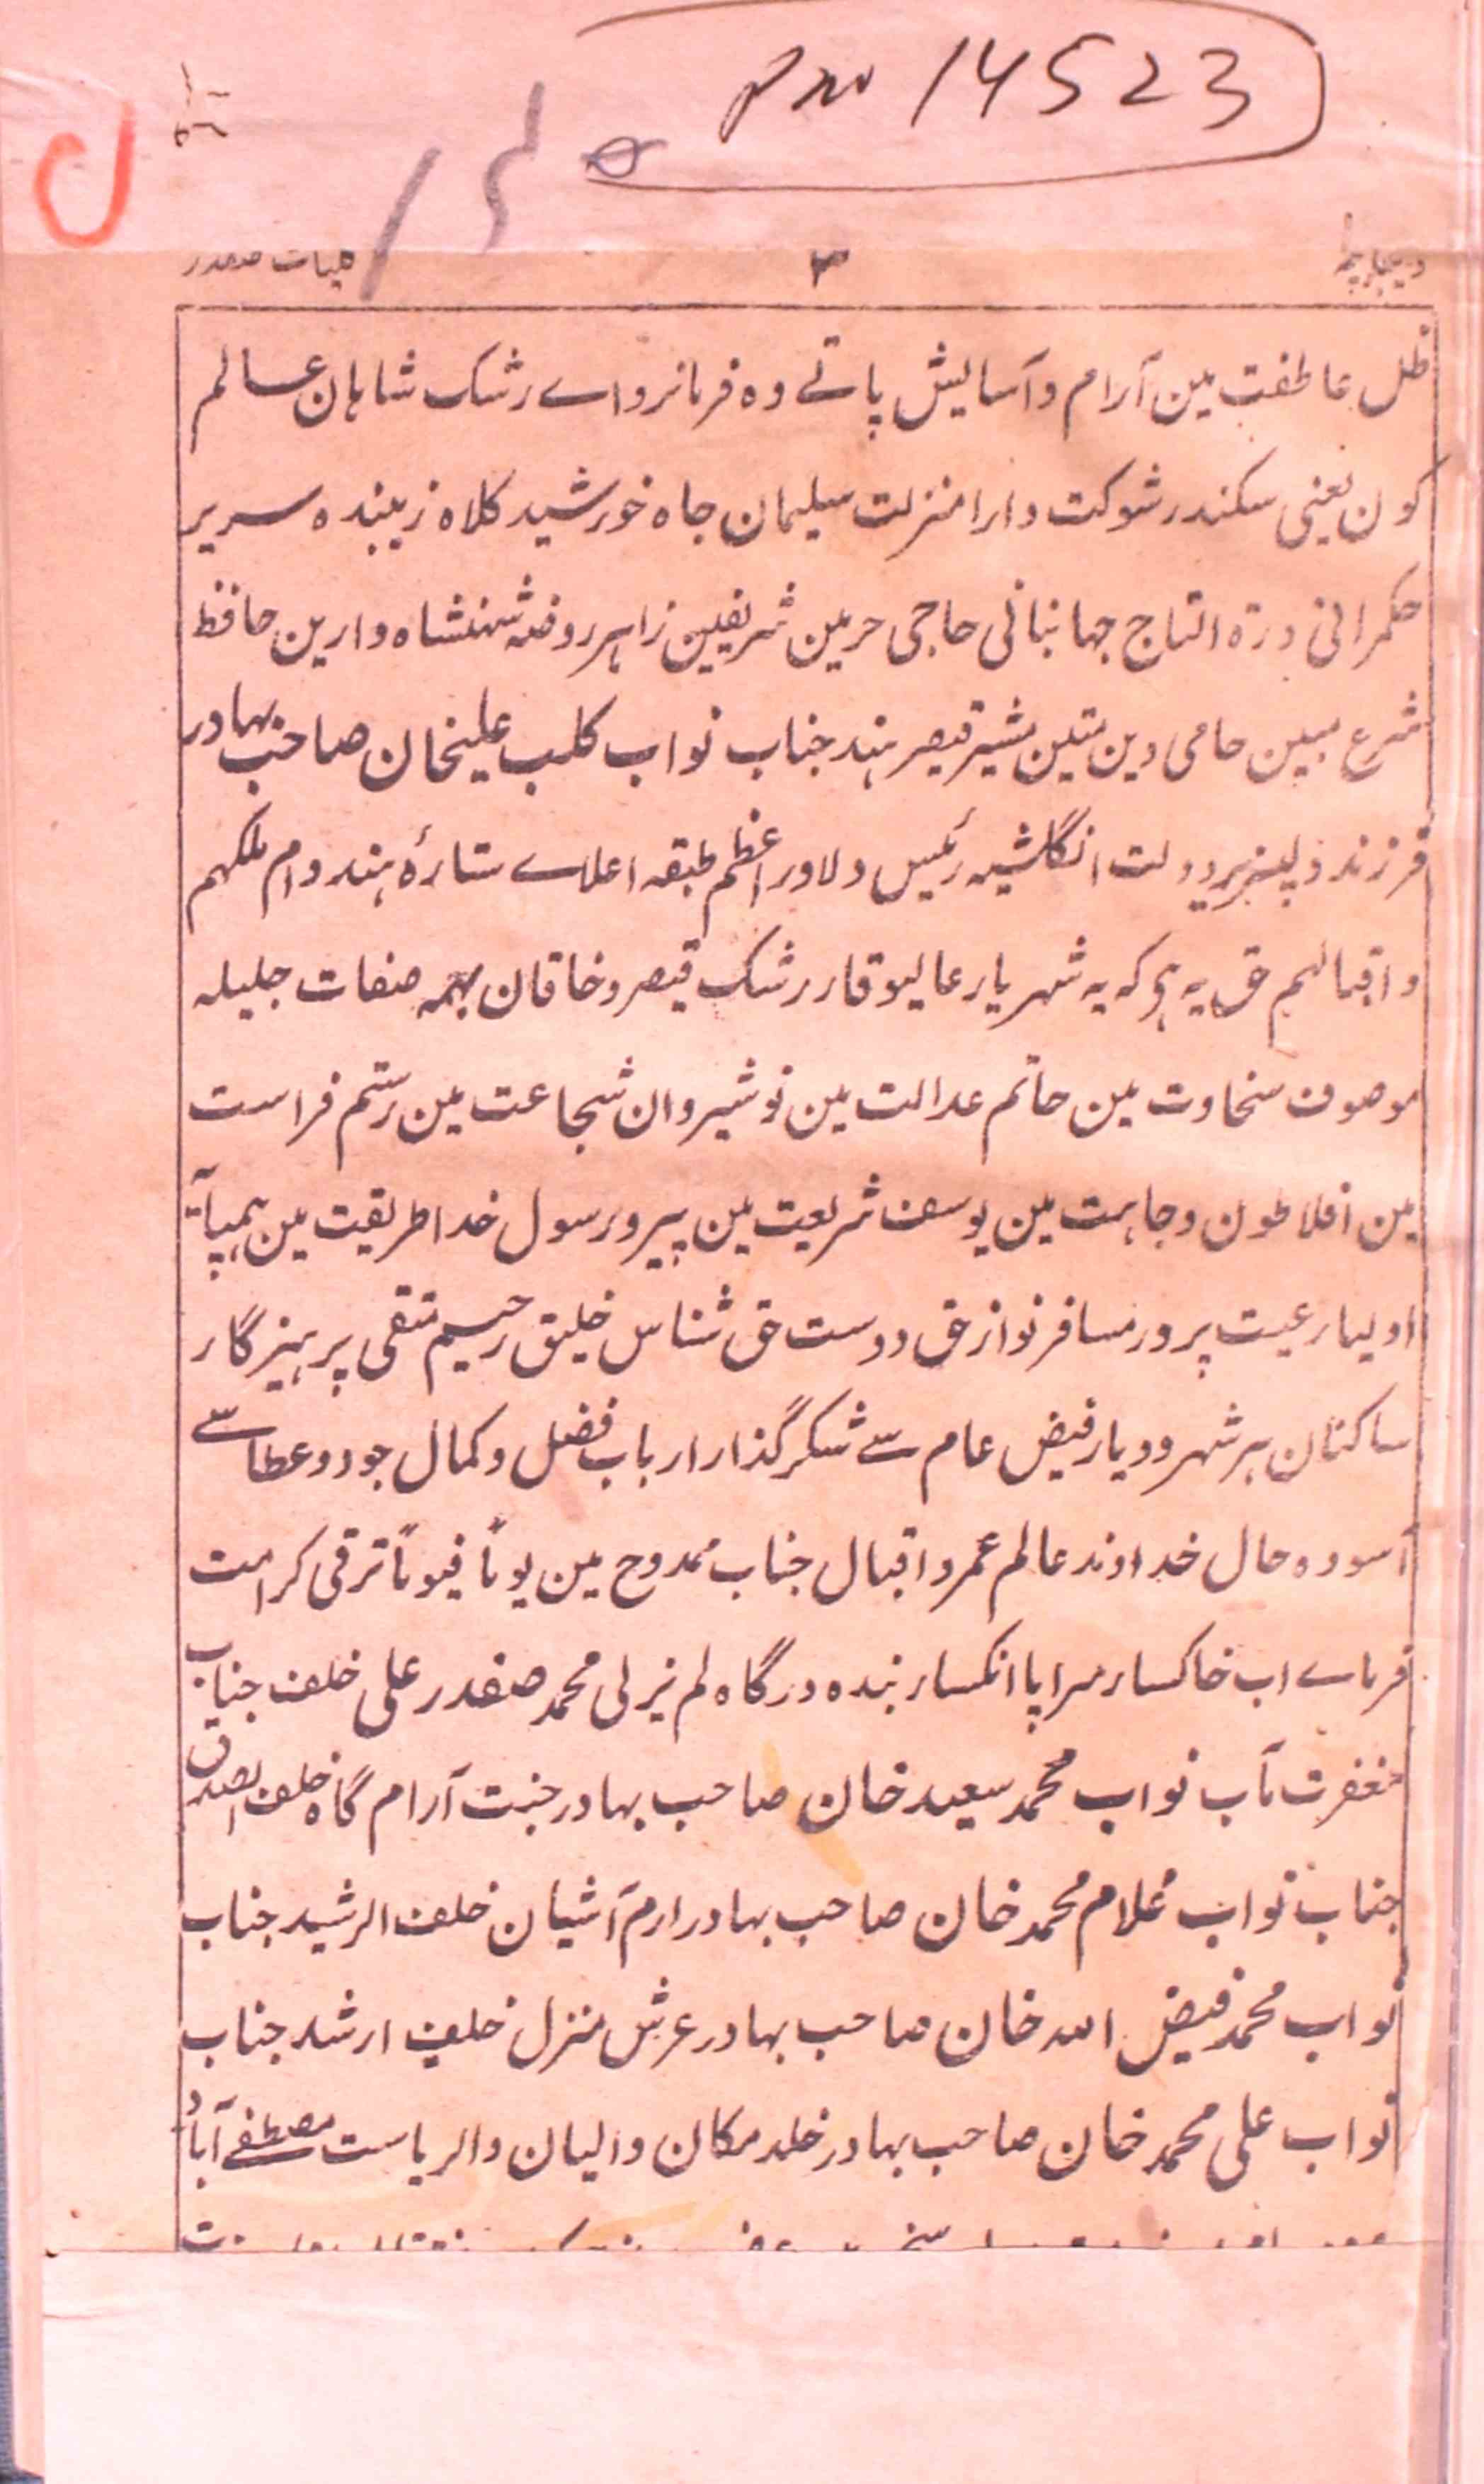 14523
دیباچہ
۳
کلیات صفدر
ظل عاطفت مین آرام و آسایش پاتے وہ فرمانرواے رشک شاہان عالم
کون یعنی سکندر شوکت دارا منزلت سلیمان جاہ خورشید کلاہ زیبندہ سریر
حکمرانی درۃ التاج جہانبانی حاجی حرمین شریفین زاہر روضہ شہنشاہ دارین حافظ
شرع مبین حامی دین متین مشیر قیصر ہند جناب نواب کلب علیخان صاحب بہادر
فرزند دلپذیر دولت انگلشیہ رئیس دلاور اعظم طبقہ اعلاے ستارۂ ہند دام ملکہم
و اقبالہم حق یہ ہی کہ یہ شہریار عالیوقار رشک قیصر و خاقان بہمہ صفات جلیلہ
موصوف سخاوت مین حاتم عدالت مین نوشیروان شجاعت مین رستم فراست
مین افلاطون وجاہت مین یوسف شریعت مین پیرو رسول خدا طریقت مین ہمپایۂ
اولیا رعیت پرور مسافر نواز حق دوست حق شناس خلیق رحیم متقی پرہیزگار
ساکنان ہر شہر و دیار فیض عام سے شکر گذار ارباب فضل و کمال جود و عطا سے
آسودہ حال خداوند عالم عمر و اقبال جناب ممدوح مین یوماً فیوماً ترقی کرامت
فرماے اب خاکسار سراپا انکسار بندہ درگاہ لم یزلی محمد صفدر علی خلف جناب
مغفرت مآب نواب محمد سعید خان صاحب بہادر جنت آرام گاہ خلف الصدق
جناب نواب غلام محمد خان صاحب بہادر ارم آشیان خلف الرشید جناب
نواب محمد فیض اللہ خان صاحب بہادر عرش منزل خلف ارشد جناب
نواب علی محمد خان صاحب بہادر خلد مکان والیان والریاست مصطفے آباد